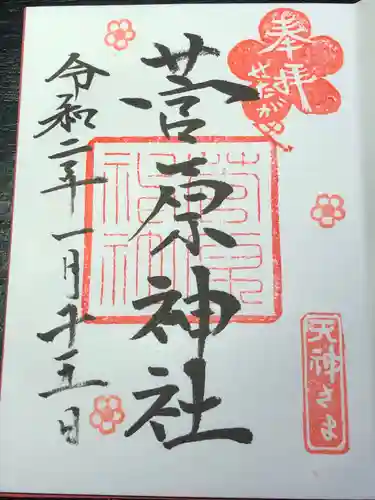 奉拝
せたがや
菅原神社
令和二年一月十五日
天神さま